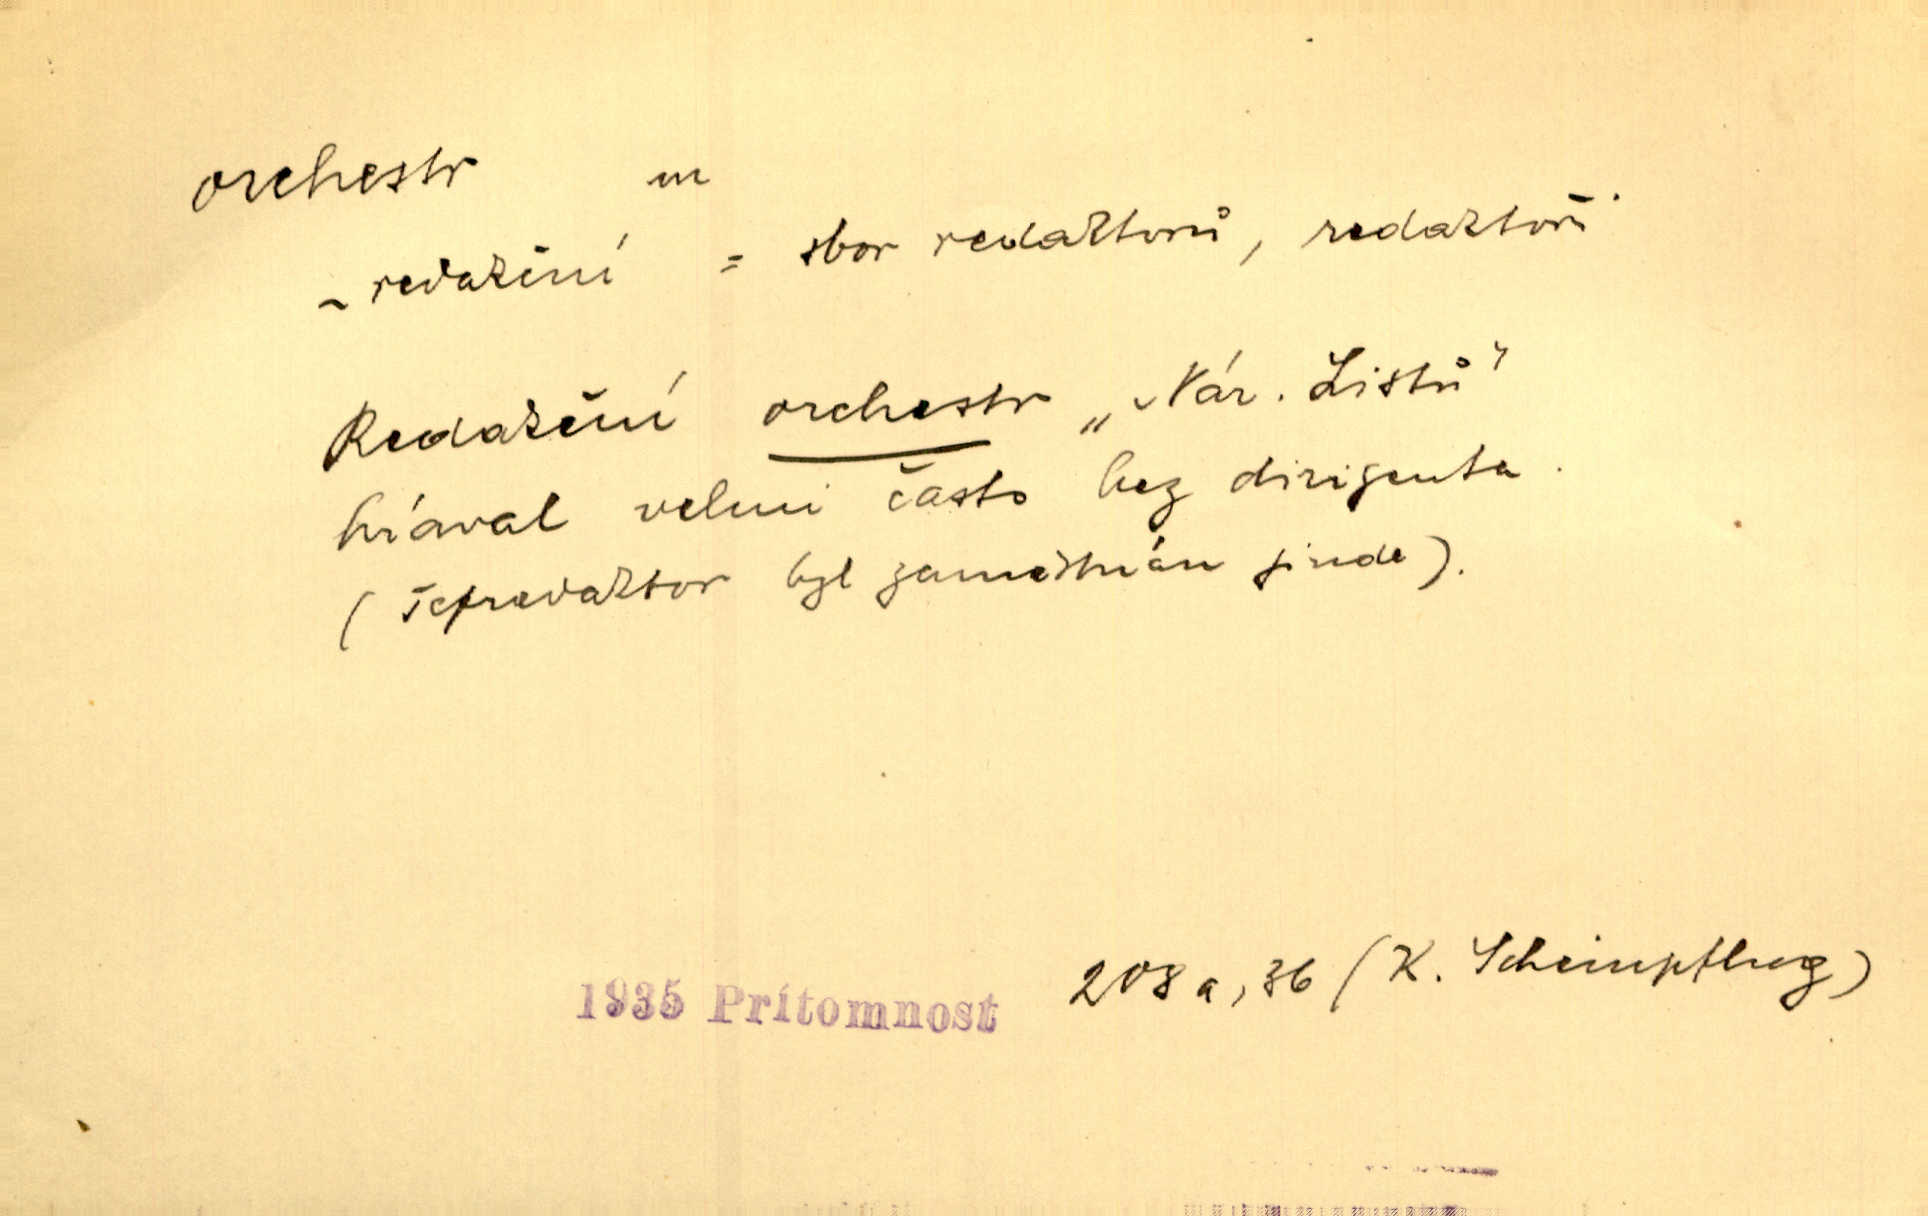 orchestr m
~ redakční = sbor redaktorů, redaktoři
Redakční orchestr „Nár. Listů"
hrával velmi často bez dirigenta.
(šéfredaktor byl zaměstnán jinde).
1935 Prítomnost 208a, 36 (K. Scheinpflug)